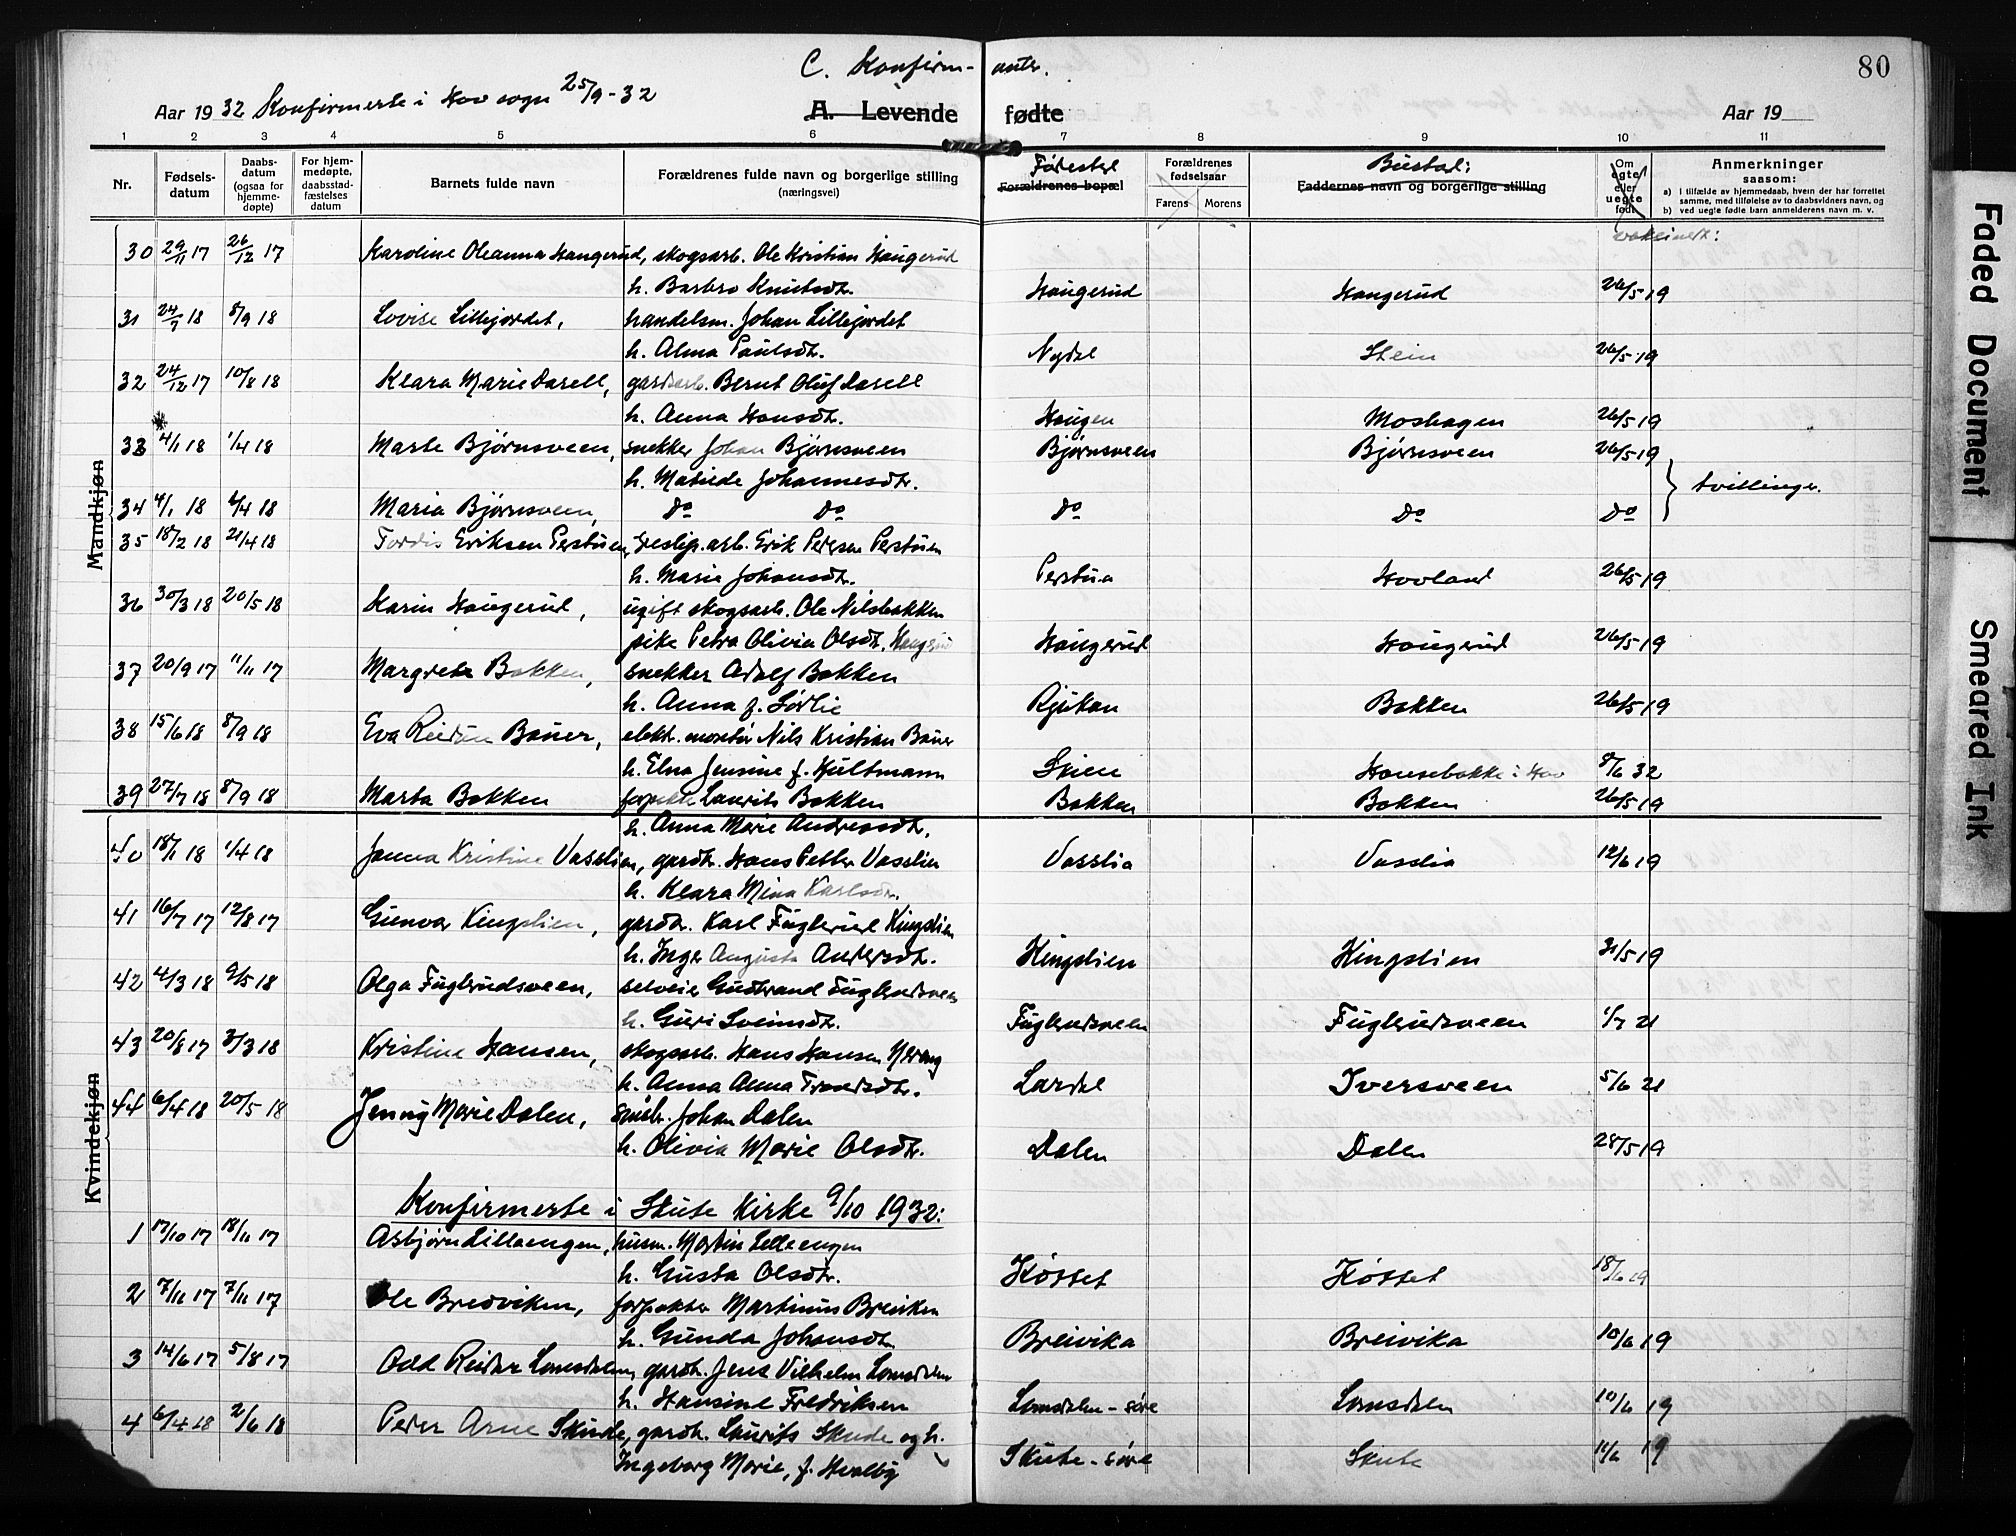 C. Konfirm- anter.
80
Aar 1932 Konfirmerte i Hov sogn 25/9-32
A. Levende fødte
Aar 19
1 2 3 4 5 6 7 8 9 10 11
Nr. Fødsels-datum Daabs-datum (ogsaa for hjemme-døpte) For hjem-medøpte, daabsstad-fæstelses datum Barnets fulde navn Forældrenes fulde navn og borgerlige stilling (næringsvei) Fødested Forældrenes bopæl Forældrenes fødselsaar Farens Morens Bustad: Faddernes navn og borgerlige stilling Om egte eller uegte født Anmerkninger saasom:
a) I tilfælde av hjemmedaab, hvem der har forrettet samme, med tilføielse av to daabsvidners navn, og
b) ved uegte fødte barn anmelderens navn m. v.
30 29/11 17 26/12 17 Karoline Oleanna Haugerud, skogsarb. Ole Kristian Haugerud
h. Barbro Knutsdtr. Haugerud Haugerud 26/5 19
31 24/7 18 8/9 18 Lovise Lillejordet, handelsm. Johan Lillejordet
h. Alma Paulsdtr. Nydal Stein 26/5 19
32 24/12 17 10/8 18 Klara Marie Dasell, gardsarb. Bernt Oluf Dasell
h. Anna Hansdtr. Haugen Moshagen 26/5 19
33 4/1 18 1/4 18 Marte Bjørnsveen, snekker Johan Bjørnsveen Bjørnsveen Bjørnsveen 26/5 19
h. Matilde Johannesdtr. tvillinger.
34 4/1 18 1/4 18 Maria Bjørnsveen, Do Do Do Do Do
35 18/2 18 21/4 18 Tordis Eriksen Perstuen, treslip. arb. Erik Petersen Perstuen
h. Marie Johansdtr. Perstua Hovland 26/5 19
36 30/3 18 20/5 18 Karin Haugerud, ugift skogsarb. Ole Nilsbakken
pike Petra Olivia Olsdtr. Haugerud Haugerud Haugerud 26/5 19
37 20/9 17 11/11 17 Margrete Bakken, snekker Adolf Bakken
h. Anna f. Sørlie Rjukan Bakken 26/5 19
38 15/6 18 8/9 18 Eva Reidun Bauer, elekt. montør Nils Kristian Bauer
h. Elna Jensine f. Hultmann Skien Hansebakke i Hov 8/6 32
39 27/7 18 8/9 18 Marta Bakken forpakter Laurits Bakken Bakken Bakken 26/5 19
h. Anna Marie Andreasdtr.
40 18/1 18 1/4 18 Janna Kristine Vasslien, gardbr. Hans Petter Vasslien Vasslia Vasslia 12/6 19
h. Klara Mina Karlsdtr.
41 16/7 17 12/8 17 Gunvor Kingslien, gardbr. Karl Fuglerud Kingslien
h. Inger Augusta Andersdtr. Kingslien Kingslien 31/5 19
42 4/3 18 9/5 18 Olga Fuglerudsveen, selveier Gudbrand Fuglerudsveen
h. Guri Sveinsdtr. Fuglerudsveen Fuglerudsveen 1/7 21
43 20/8 17 3/3 18 Kristine Hansen, skogsarb. Hans Hansen
h. Anna Anna Lardal Iversveen 5/6 21
44 6/4 18 20/5 18 Jenny Marie Dalen, småbr. Johan Dalen
h. Olivia Marie Olsdtr. Dalen Dalen 28/5 19
Konfirmerte i Skute Kirke 9/10 1932:
1 17/10 17 18/11 17 Asbjørn Lillaengen, husm. Martin Lillaengen
h. Gusta Olsdtr. Køsset Køsset 18/6 19
2 7/11 17 7/11 17 Ole Breidviken, forpakter Martinus Breiviken
h. Gunda Johansdtr. Breivika Breivika 10/6 19
3 14/6 17 5/8 17 Odd Reidar Lomsdalen, gardbr. Jens Vilhelm Lomsdalen
h. Hansine Fredriksen Lomsdalen - søre Lomsdalen 10/6 19
4 6/4 18 2/6 18 Peder Arne Skute, gardbr. Laurits Skute og h.
Ingeborg Marie, f. Hvalby Skute - søre Skute 11/6 19
Mandkjøn
Kvindekjøn
Faded Document
Smeared Ink